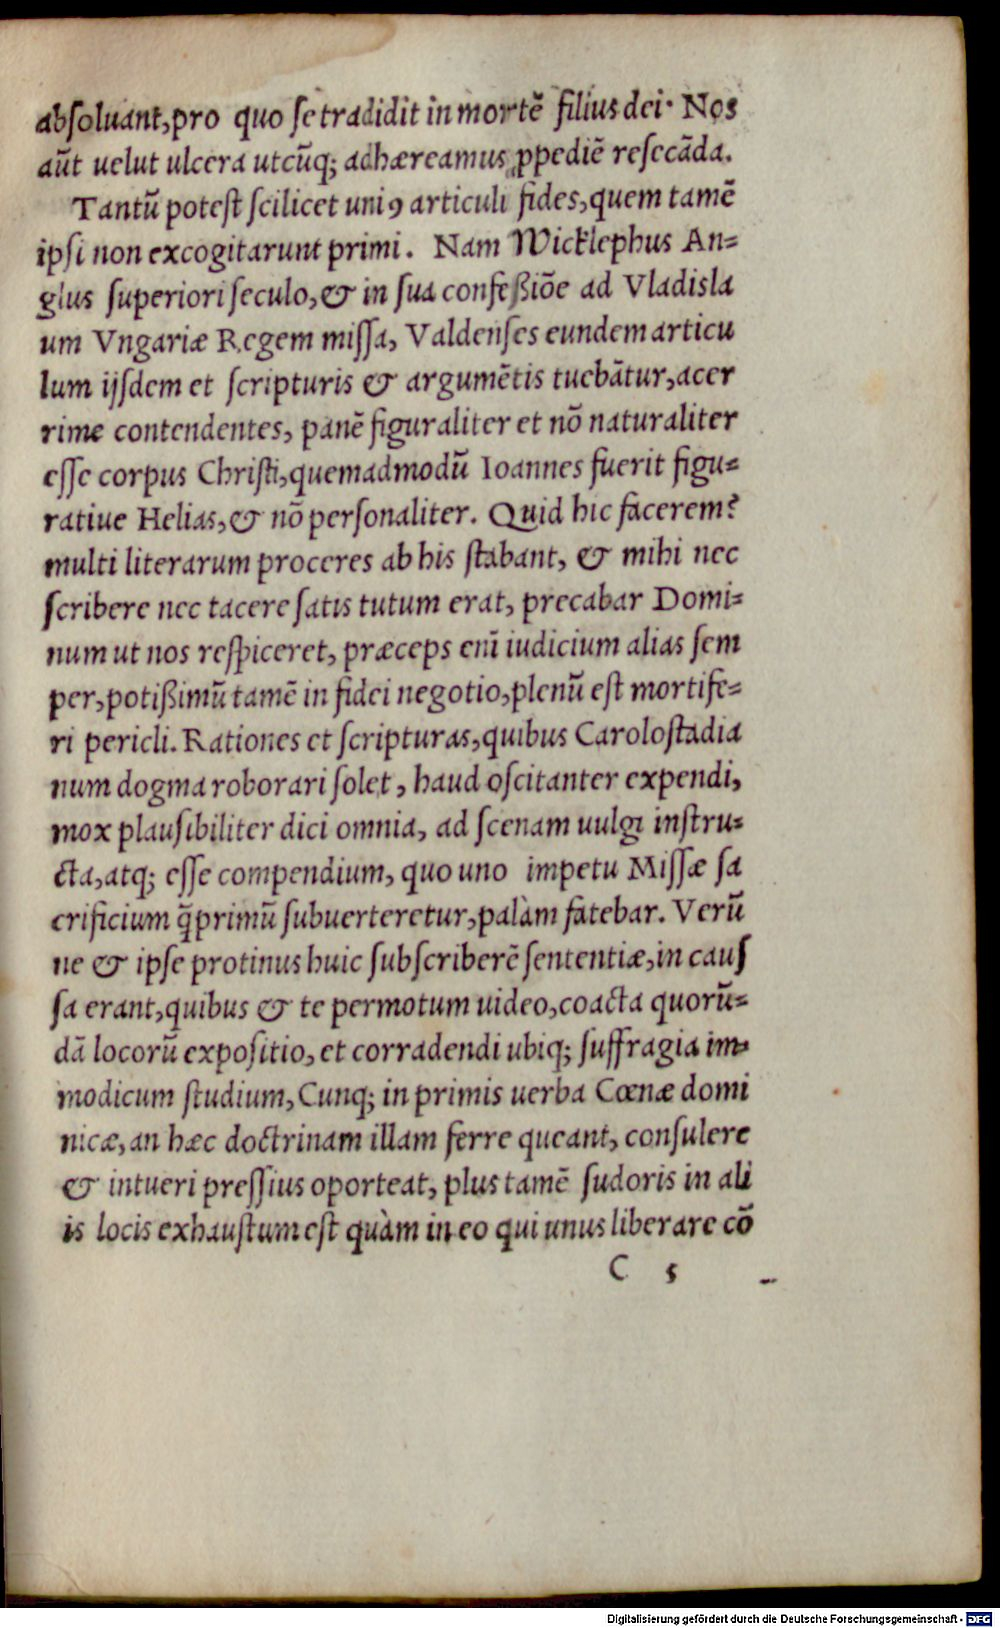 abſoluant, pro quo ſe tradidit in mortē filius dei. Nos
aūt uelut ulcera utcūq; adhæreamus ꝓpediē reſecāda.
Tantū poteſt ſcilicet uniꝰ articuli fides, quem tamē
ipſi non excogitarunt primi. Nam Wicklephus An=
glus ſuperiori ſeculo, & in ſua confeßiōe ad Vladisla
um Vngariæ Regem miſſa, Valdenſes eundem articu
lum ijſdem et ſcripturis & argumētis tuebātur, acer
rime contendentes, panē figuraliter et nō naturaliter
eſſe corpus Chriſti, quemadmodū Ioannes fuerit figu=
ratiue Helias, & nō perſonaliter. Quid hic facerem?
multi literarum proceres ab his ſtabant, & mihi nec
ſcribere nec tacere ſatis tutum erat, precabar Domi=
num ut nos reſpiceret, præceps enī iudicium alias ſem
per, potißimū tamē in fidei negotio, plenū eſt mortife=
ri pericli. Rationes et ſcripturas, quibus Caroloſtadia
num dogma roborari ſolet, haud oſcitanter expendi,
mox plauſibiliter dici omnia, ad ſcenam uulgi inſtru=
cta, atq; eſſe compendium, quo uno impetu Miſſæ ſa
crificium q̄primū ſubuerteretur, palàm fatebar. Verū
ne & ipſe protinus huic ſubſcriberē ſententiæ, in cauſ
ſa erant, quibus & te permotum uideo, coacta quorū=
dā locorū expoſitio, et corradendi ubiq; ſuffragia im=
modicum ſtudium, Cunq; in primis uerba Cœnæ domi
nicæ, an hæc doctrinam illam ferre queant, conſulere
& intueri preſſius oporteat, plus tamē ſudoris in ali
is locis exhauſtum eſt quàm in eo qui unus liberare cō
C 5
Digitalisierung gefördert durch die Deutsche Forschungsgemeinschaft - DFG